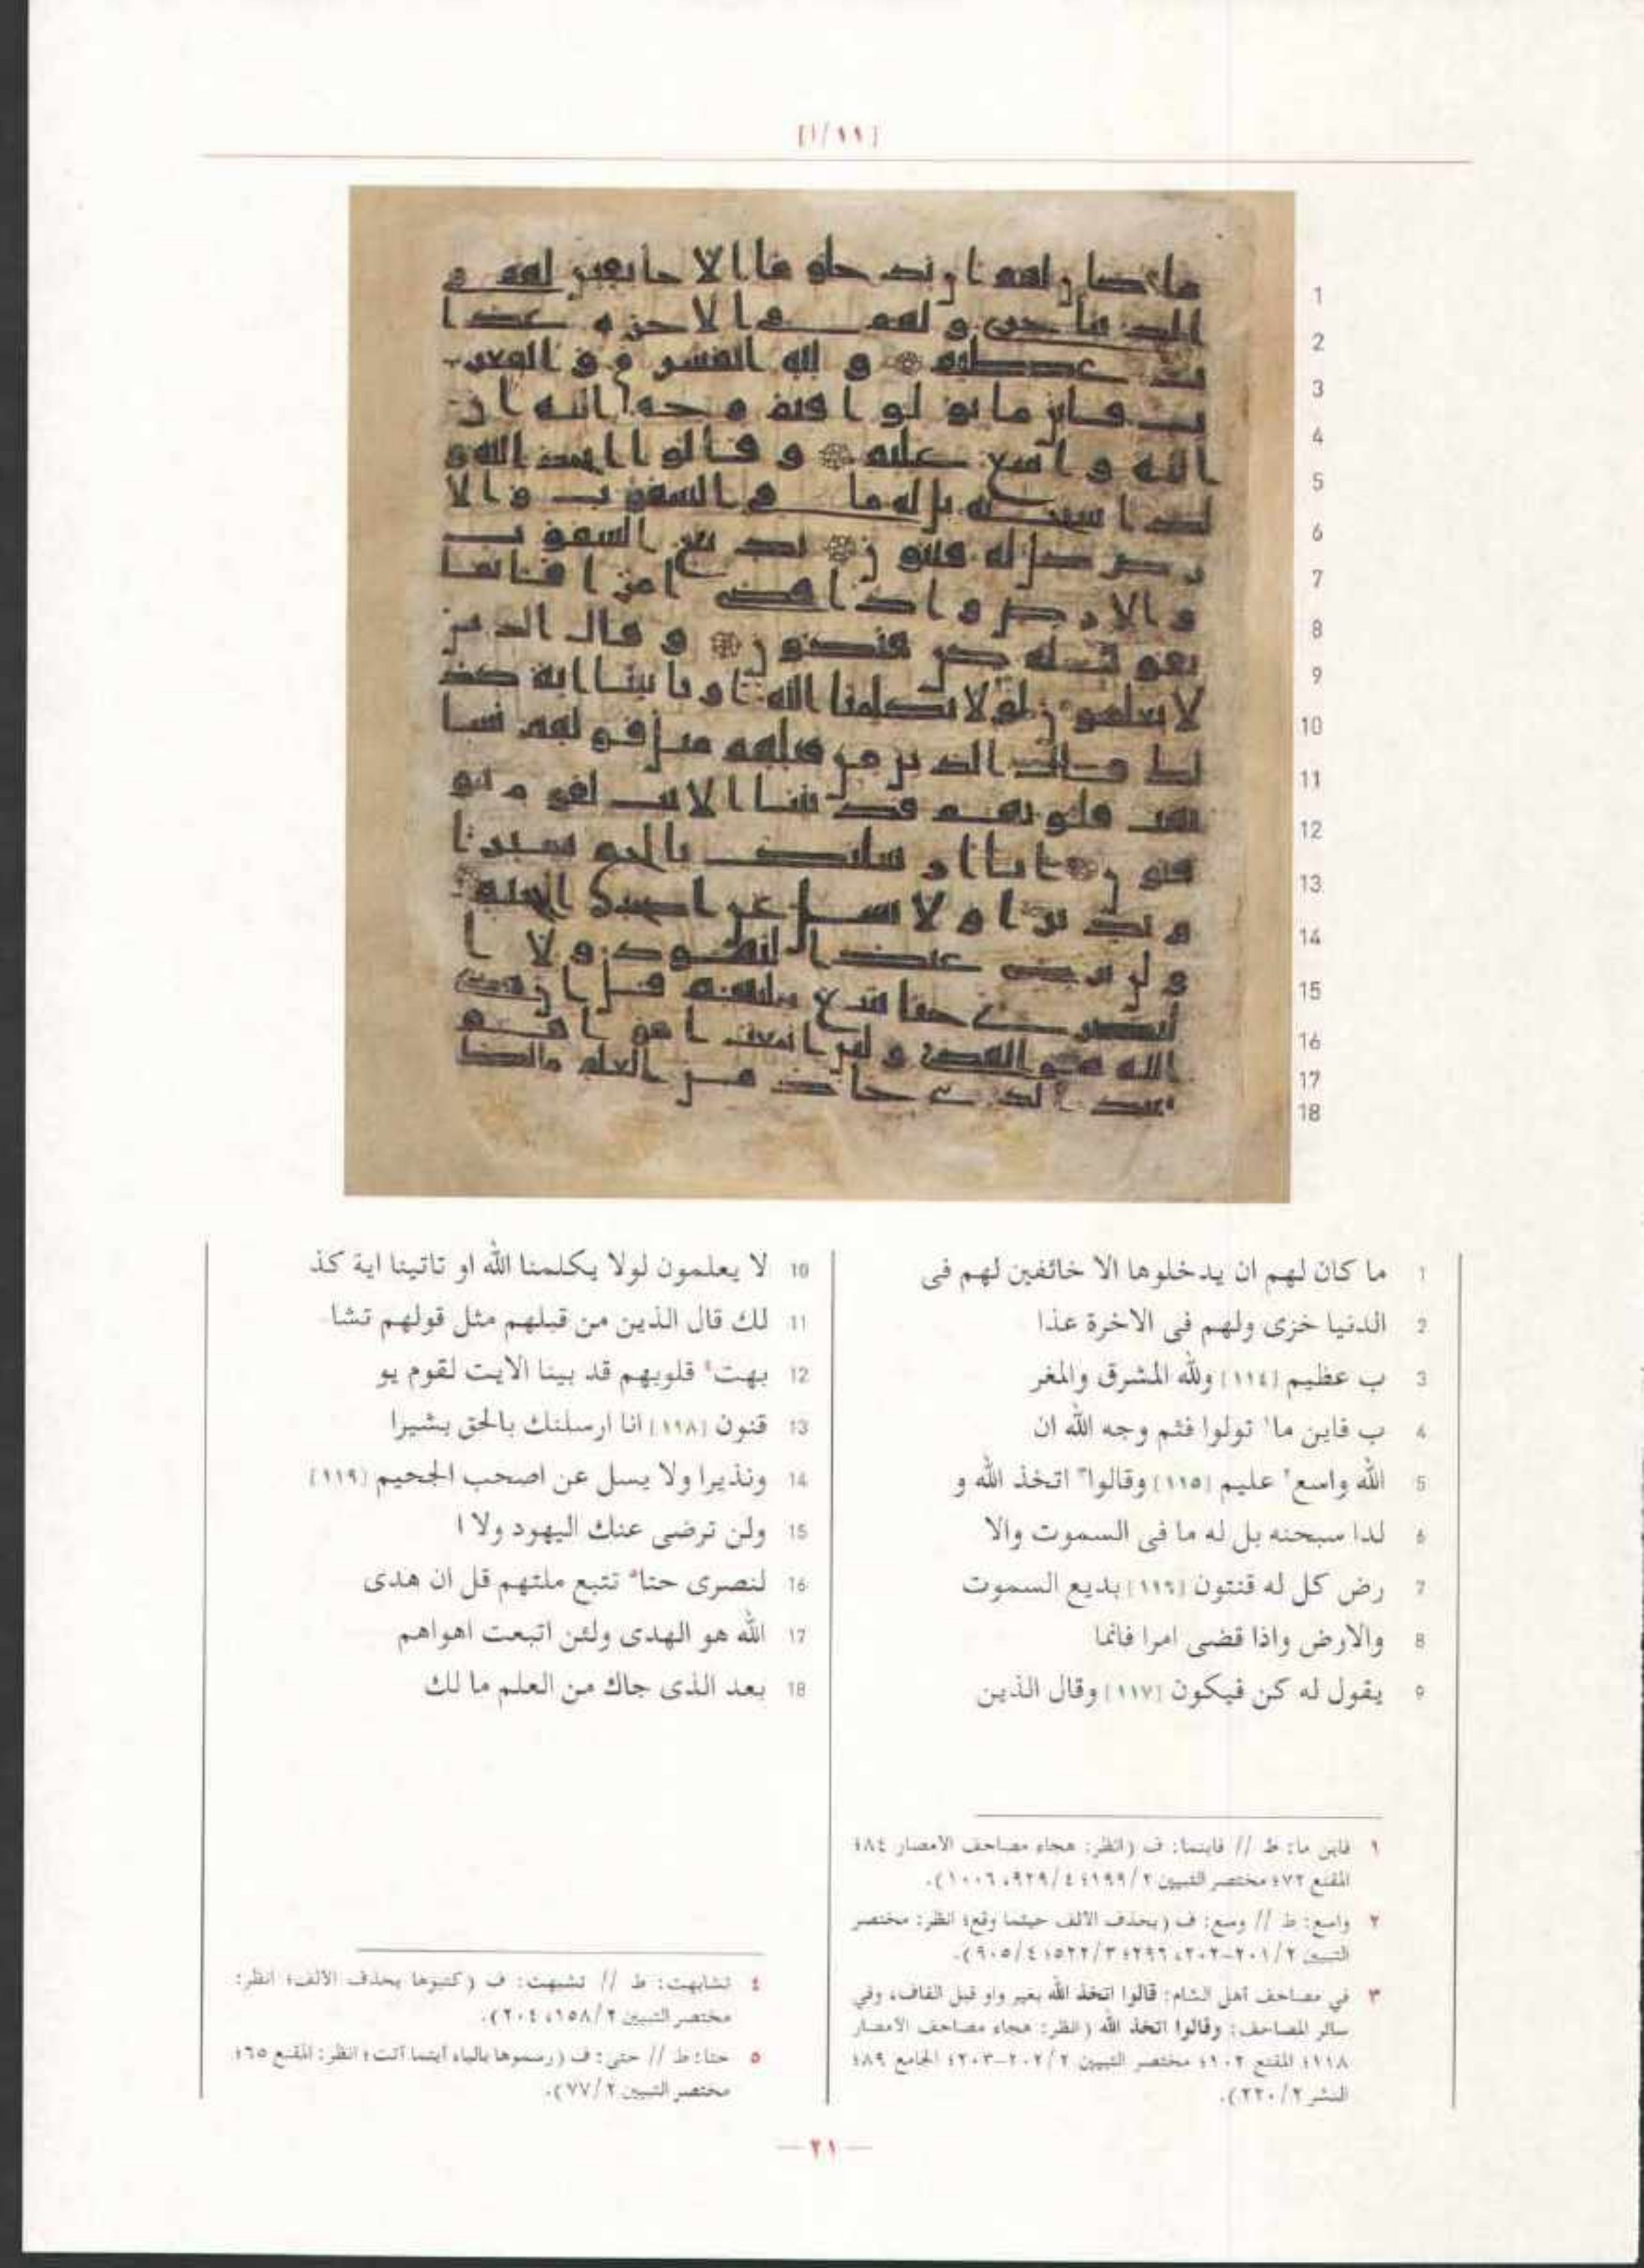 [١١/ا]
1 ما كان لهم ان يدخلوها الا خائفين لهم فى
2 الدنيا خزى ولهم فى الاخرة عذا
3 ب عظيم [١١٤] ولله المشرق والمغر
4 ب فاين ما١ تولوا فثم وجه الله ان
5 الله واسع٢ عليم [١١٥] وقالوا٣ اتخذ الله و
6 لدا سبحنه بل له ما فى السموت والا
7 رض كل له قنتون [١١٦] بديع السموت
8 والارض واذا قضى امرا فانما
9 يقول له كن فيكون [١١٧] وقال الذين
10 لا يعلمون لولا يكلمنا الله او تاتينا اية كذ
11 لك قال الذين من قبلهم مثل قولهم تشا
12 بهت٤ قلوبهم قد بينا الايت لقوم يو
13 قنون [١١٨] انا ارسلنك بالحق بشيرا
14 ونذيرا ولا يسل عن اصحب الجحيم [١١٩]
15 ولن ترضى عنك اليهود ولا ا
16 لنصرى حتا٥ تتبع ملتهم قل ان هدى
17 الله هو الهدى ولئن اتبعت اهواهم
18 بعد الذى جاك من العلم ما لك
١ فاين ما: ط // فاينما: ف (انظر: هجاء مصاحف الأمصار ٨٤؛
المقنع ٧٢؛ مختصر التبيين ١٩٩/٢؛ ٩٢٩/٤، ١٠٠٦).
٢ واسع: ط // وسع: ف (بحذف الألف حيثما وقع؛ انظر: مختصر
التبيين ٢٠١/٢-٢٠٢، ٢٩٦؛ ٥٢٢/٣؛ ٩٠٥/٤).
٣ في مصاحف أهل الشام: قالوا اتخذ الله بغير واو قبل القاف، وفي
سائر المصاحف: وقالوا اتخذ الله (انظر: هجاء مصاحف الأمصار
١١٨؛ المقنع ١٠٢؛ مختصر التبيين ٢٠٢/٢-٢٠٣؛ الجامع ٨٩؛
النشر ٢٢٠/٢).
٤ تشابهت: ط // تشبهت: ف (كتبوها بحذف الألف؛ انظر:
مختصر التبيين ١٥٨/٢، ٢٠٤).
٥ حتا: ط // حتى: ف (رسموها بالياء أينما أتت؛ انظر: المقنع ٦٥؛
مختصر التبيين ٧٧/٢).
— ٢١ —